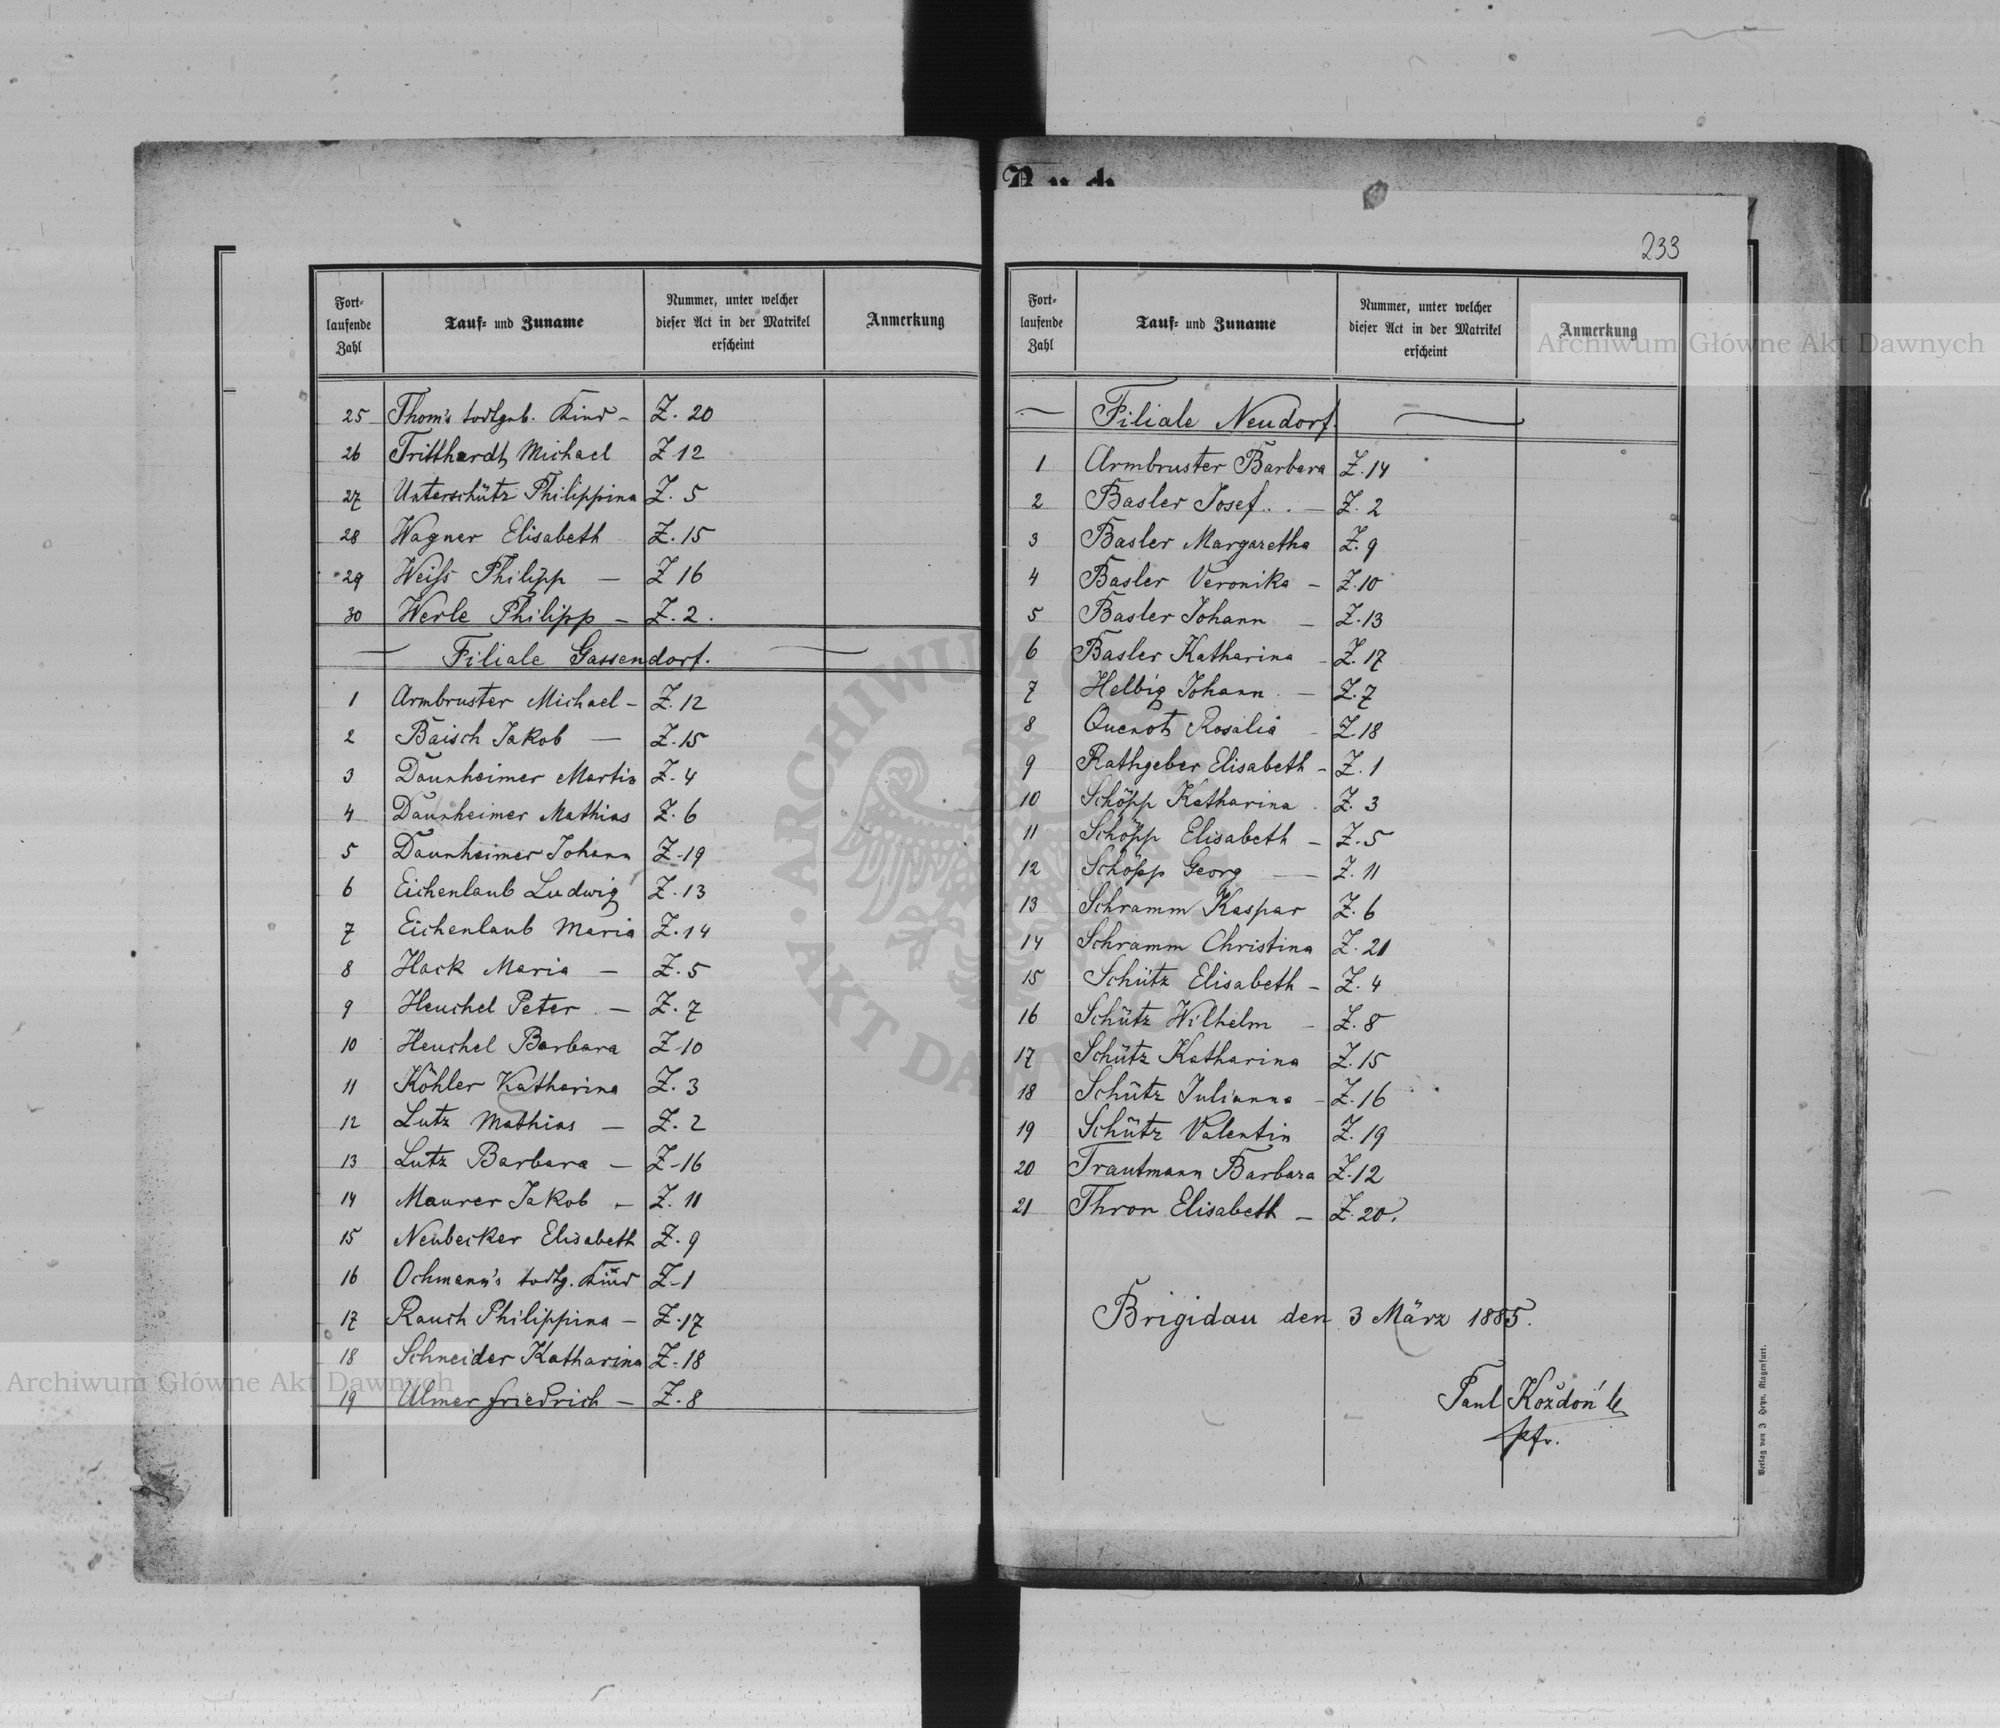 Fort-
laufende
Zahl
Tauf- und Zuname
Nummer, unter welcher
dieser Act in der Matrikel
erscheint
Anmerkung
25 Thom's todtgeb. Kind – Z. 20
26 Tritthardt Michael Z. 12
27 Unterschütz Philippina Z. 5
28 Wagner Elisabeth Z. 15
29 Weiss Philipp – Z 16
30 Werle Philipp – Z. 2.
Filiale Gassendorf.
1 Armbruster Michael – Z. 12
2 Baisch Jakob – Z. 15
3 Daunheimer Martin Z. 4
4 Daunheimer Mathias Z. 6
5 Daunheimer Johann Z. 19
6 Eichenlaub Ludwig Z. 13
7 Eichenlaub Maria Z. 14
8 Hack Maria – Z. 5
9 Heuchel Peter – Z. 7
10 Heuchel Barbara Z. 10
11 Köhler Katharina Z. 3
12 Lutz Mathias – Z. 2
13 Lutz Barbara – Z. 16
14 Maurer Jakob – Z. 11
15 Neubecker Elisabeth Z. 9
16 Ochmann's todtg. Kind Z. 1
17 Rauch Philippina – Z. 17
18 Schneider Katharina Z. 18
19 Ulmer Friedrich – Z. 8
Buch
233
Fort-
laufende
Zahl
Tauf- und Zuname
Nummer, unter welcher
dieser Act in der Matrikel
erscheint
Anmerkung
Filiale Neudorf.
1 Armbruster Barbara Z. 14
2 Basler Josef . . – Z. 2
3 Basler Margaretha Z. 9
4 Basler Veronika – Z. 10
5 Basler Johann – Z. 13
6 Basler Katharina – Z. 17
7 Helbig Johann – Z. 7
8 Quenot Rosalia – Z. 18
9 Rathgeber Elisabeth – Z. 1
10 Schöpp Katharina Z. 3
11 Schöpp Elisabeth – Z. 5
12 Schöpp Georg – Z. 11
13 Schramm Kaspar Z. 6
14 Schramm Christina Z. 21
15 Schütz Elisabeth – Z. 4
16 Schütz Wilhelm – Z. 8
17 Schütz Katharina Z. 15
18 Schütz Julianna – Z. 16
19 Schütz Valentin Z. 19
20 Trautmann Barbara Z. 12
21 Thron Elisabeth – Z. 20.
Brigidau den 3 März 1885.
Paul Koždoń
Pfr.
Verlag von J Heyn, Klagenfurt.
Archiwum Główne Akt Dawnych
Archiwum Główne Akt Dawnych